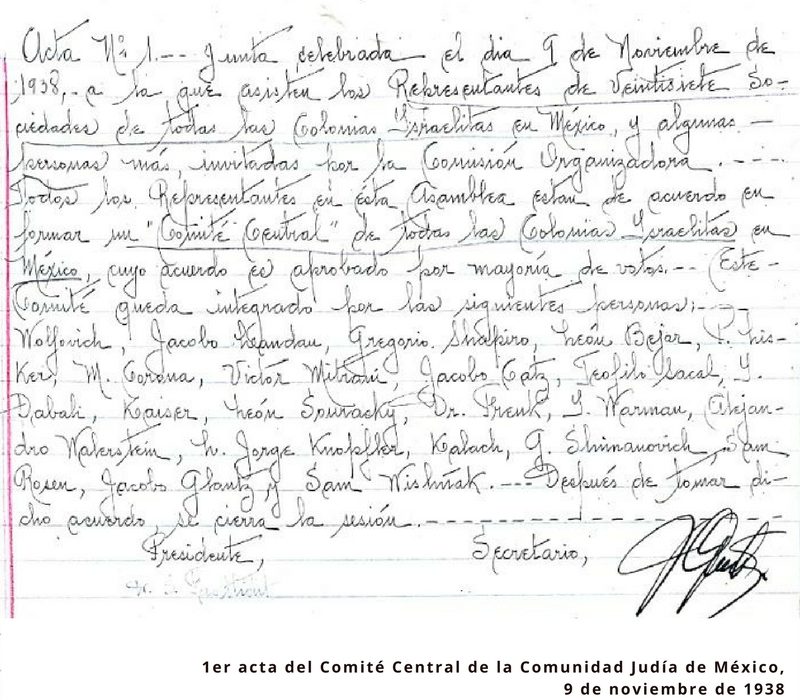 Acta Nº 1.-- Junta celebrada el dia 9 de Noviembre de
1938,- a la que asisten los Representantes de Veintisiete So-
ciedades de todas las Colonias Israelitas en México, y algunas -
personas más, invitadas por la Comisión Organizadora.-.--.
Todos los Representantes en ésta Asamblea estan de acuerdo en
formar un "Comité Central" de todas las Colonias Israelitas en
México, cuyo acuerdo es aprobado por mayoría de votos.-- Este-
Comité queda integrado por las siguientes personas:-
Wolfovich, Jacobo Landau, Gregorio Shapiro, León Bejar, P. Lis-
Ker, M. Corona, Victor Mitrani, Jacobo Catz, Teofilo Sacal, Y.
Dabali, Kaiser, León Souracky, Dr. Frenk, Y. Warman, Alejan-
dro Walerstein, L. Jorge Knopfler, Kalach, G. Shimanovich, Sam
Rosen, Jacobo Glantz y Sam Wishñak.--- Después de tomar di-
cho acuerdo, se cierra la sesión.-----------------
Presidente, Secretario,
1er acta del Comité Central de la Comunidad Judía de México,
9 de noviembre de 1938